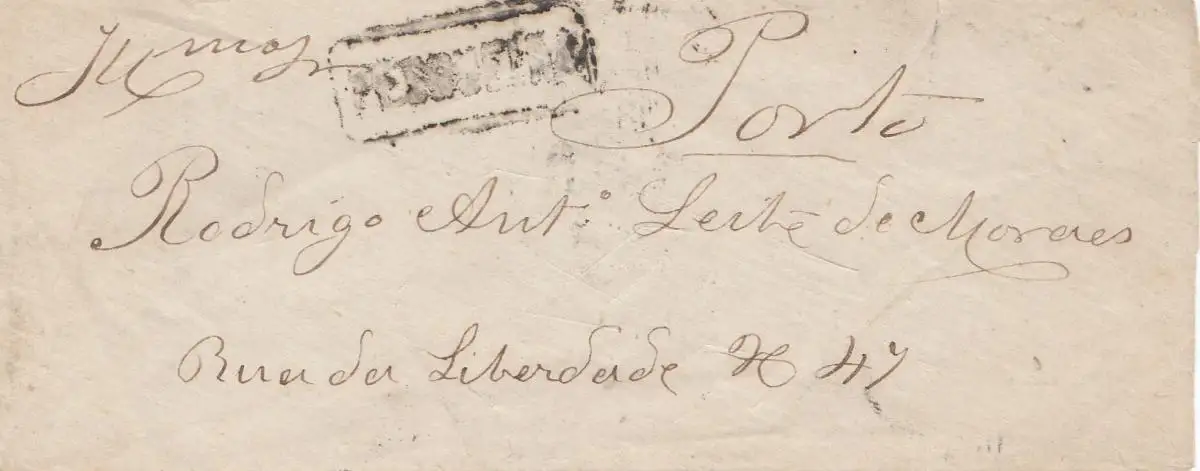 Porto
Rodrigo Ant.º Leite de Moraes
Rua da Liberdade N 47